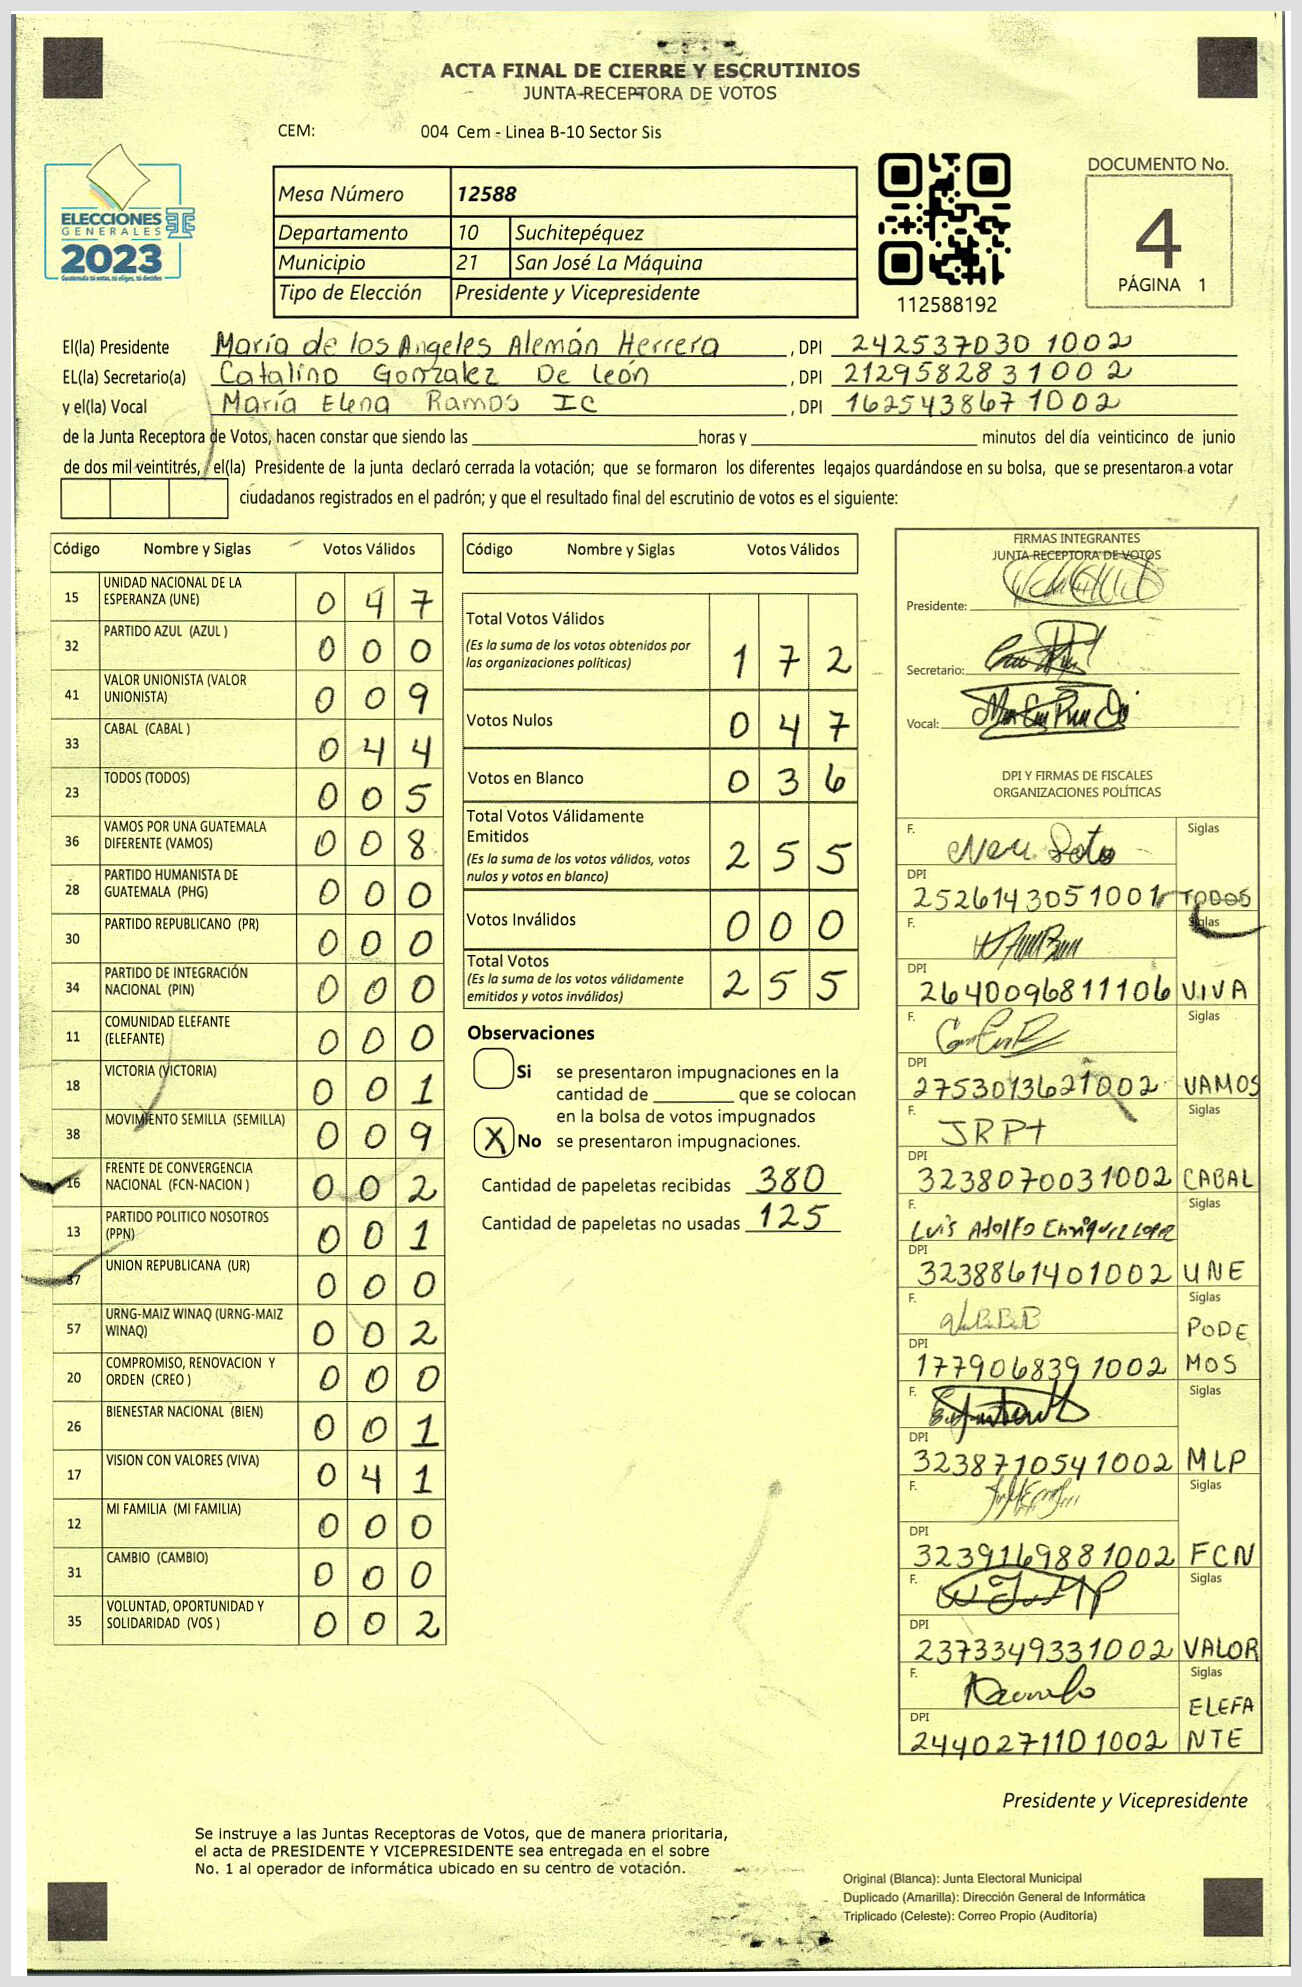 ACTA FINAL DE CIERRE Y ESCRUTINIOS
JUNTA RECEPTORA DE VOTOS
CEM: 004 Cem - Linea B-10 Sector Sis
ELECCIONES
GENERALES
2023
Guatemala tú votas, tú eliges, tú decides
Mesa Número 12588
Departamento 10 Suchitepéquez
Municipio 21 San José La Máquina
Tipo de Elección Presidente y Vicepresidente
112588192
DOCUMENTO No.
4
PÁGINA 1
El(la) Presidente María de los Angeles Alemán Herrera , DPI 242537030 1002
EL(la) Secretario(a) Catalino Gonzalez De león , DPI 212958283 1002
y el(la) Vocal María Elena Ramos IC , DPI 162543867 1002
de la Junta Receptora de Votos, hacen constar que siendo las horas y minutos del día veinticinco de junio
de dos mil veintitrés, el(la) Presidente de la junta declaró cerrada la votación; que se formaron los diferentes legajos quardándose en su bolsa, que se presentaron a votar
ciudadanos registrados en el padrón; y que el resultado final del escrutinio de votos es el siguiente:
Código Nombre y Siglas Votos Válidos
15 UNIDAD NACIONAL DE LA
ESPERANZA (UNE) 0 4 7
32 PARTIDO AZUL (AZUL ) 0 0 0
41 VALOR UNIONISTA (VALOR
UNIONISTA) 0 0 9
33 CABAL (CABAL ) 0 4 4
23 TODOS (TODOS) 0 0 5
36 VAMOS POR UNA GUATEMALA
DIFERENTE (VAMOS) 0 0 8
28 PARTIDO HUMANISTA DE
GUATEMALA (PHG) 0 0 0
30 PARTIDO REPUBLICANO (PR) 0 0 0
34 PARTIDO DE INTEGRACIÓN
NACIONAL (PIN) 0 0 0
11 COMUNIDAD ELEFANTE
(ELEFANTE) 0 0 0
18 VICTORIA (VICTORIA) 0 0 1
38 MOVIMIENTO SEMILLA (SEMILLA) 0 0 9
16 FRENTE DE CONVERGENCIA
NACIONAL (FCN-NACION ) 0 0 2
13 PARTIDO POLITICO NOSOTROS
(PPN) 0 0 1
37 UNION REPUBLICANA (UR) 0 0 0
57 URNG-MAIZ WINAQ (URNG-MAIZ
WINAQ) 0 0 2
20 COMPROMISO, RENOVACION Y
ORDEN (CREO ) 0 0 0
26 BIENESTAR NACIONAL (BIEN) 0 0 1
17 VISION CON VALORES (VIVA) 0 4 1
12 MI FAMILIA (MI FAMILIA) 0 0 0
31 CAMBIO (CAMBIO) 0 0 0
35 VOLUNTAD, OPORTUNIDAD Y
SOLIDARIDAD (VOS ) 0 0 2
Código Nombre y Siglas Votos Válidos
Total Votos Válidos
(Es la suma de los votos obtenidos por
las organizaciones políticas) 1 7 2
Votos Nulos 0 4 7
Votos en Blanco 0 3 6
Total Votos Válidamente
Emitidos
(Es la suma de los votos válidos, votos
nulos y votos en blanco) 2 5 5
Votos Inválidos 0 0 0
Total Votos
(Es la suma de los votos válidamente
emitidos y votos inválidos) 2 5 5
Observaciones
Si se presentaron impugnaciones en la
cantidad de que se colocan
en la bolsa de votos impugnados
X No se presentaron impugnaciones.
Cantidad de papeletas recibidas 380
Cantidad de papeletas no usadas 125
FIRMAS INTEGRANTES
JUNTA RECEPTORA DE VOTOS
Presidente:
Secretario:
Vocal:
DPI Y FIRMAS DE FISCALES
ORGANIZACIONES POLÍTICAS
F. Siglas
DPI
2526143051001 TODOS
F. Siglas
DPI
2640096811106 VIVA
F. Siglas
DPI
2753013621002 VAMOS
F. JRPt Siglas
DPI
3238070031002 CABAL
F. Luis Adolfo Enriquez Lopez Siglas
DPI
3238861401002 UNE
F. Siglas
PODE
DPI
1779068391002 MOS
F. Siglas
DPI
3238710541002 MLP
F. Siglas
DPI
3239169881002 FCN
F. Siglas
DPI
2373349331002 VALOR
F. Siglas
ELEFA
DPI
2440271101002 NTE
Presidente y Vicepresidente
Se instruye a las Juntas Receptoras de Votos, que de manera prioritaria,
el acta de PRESIDENTE Y VICEPRESIDENTE sea entregada en el sobre
No. 1 al operador de informática ubicado en su centro de votación.
Original (Blanca): Junta Electoral Municipal
Duplicado (Amarilla): Dirección General de Informática
Triplicado (Celeste): Correo Propio (Auditoría)